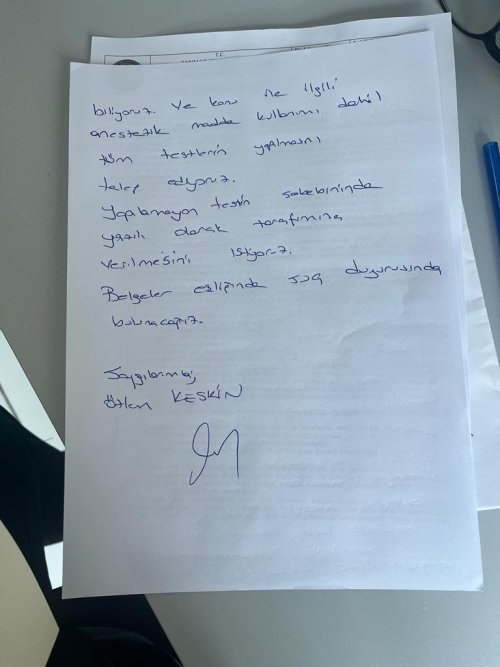 biliyoruz. Ve konu ile ilgili
anestetik madde kullanımı dahil
tüm testlerin yapılmasını
talep ediyoruz.
Yapılamayan testin sebebininde
yazılı olarak tarafımıza
verilmesini istiyoruz.
Belgeler eşliğinde suç duyurusunda
bulunacağız.
Saygılarımla,
Özlem KESKİN